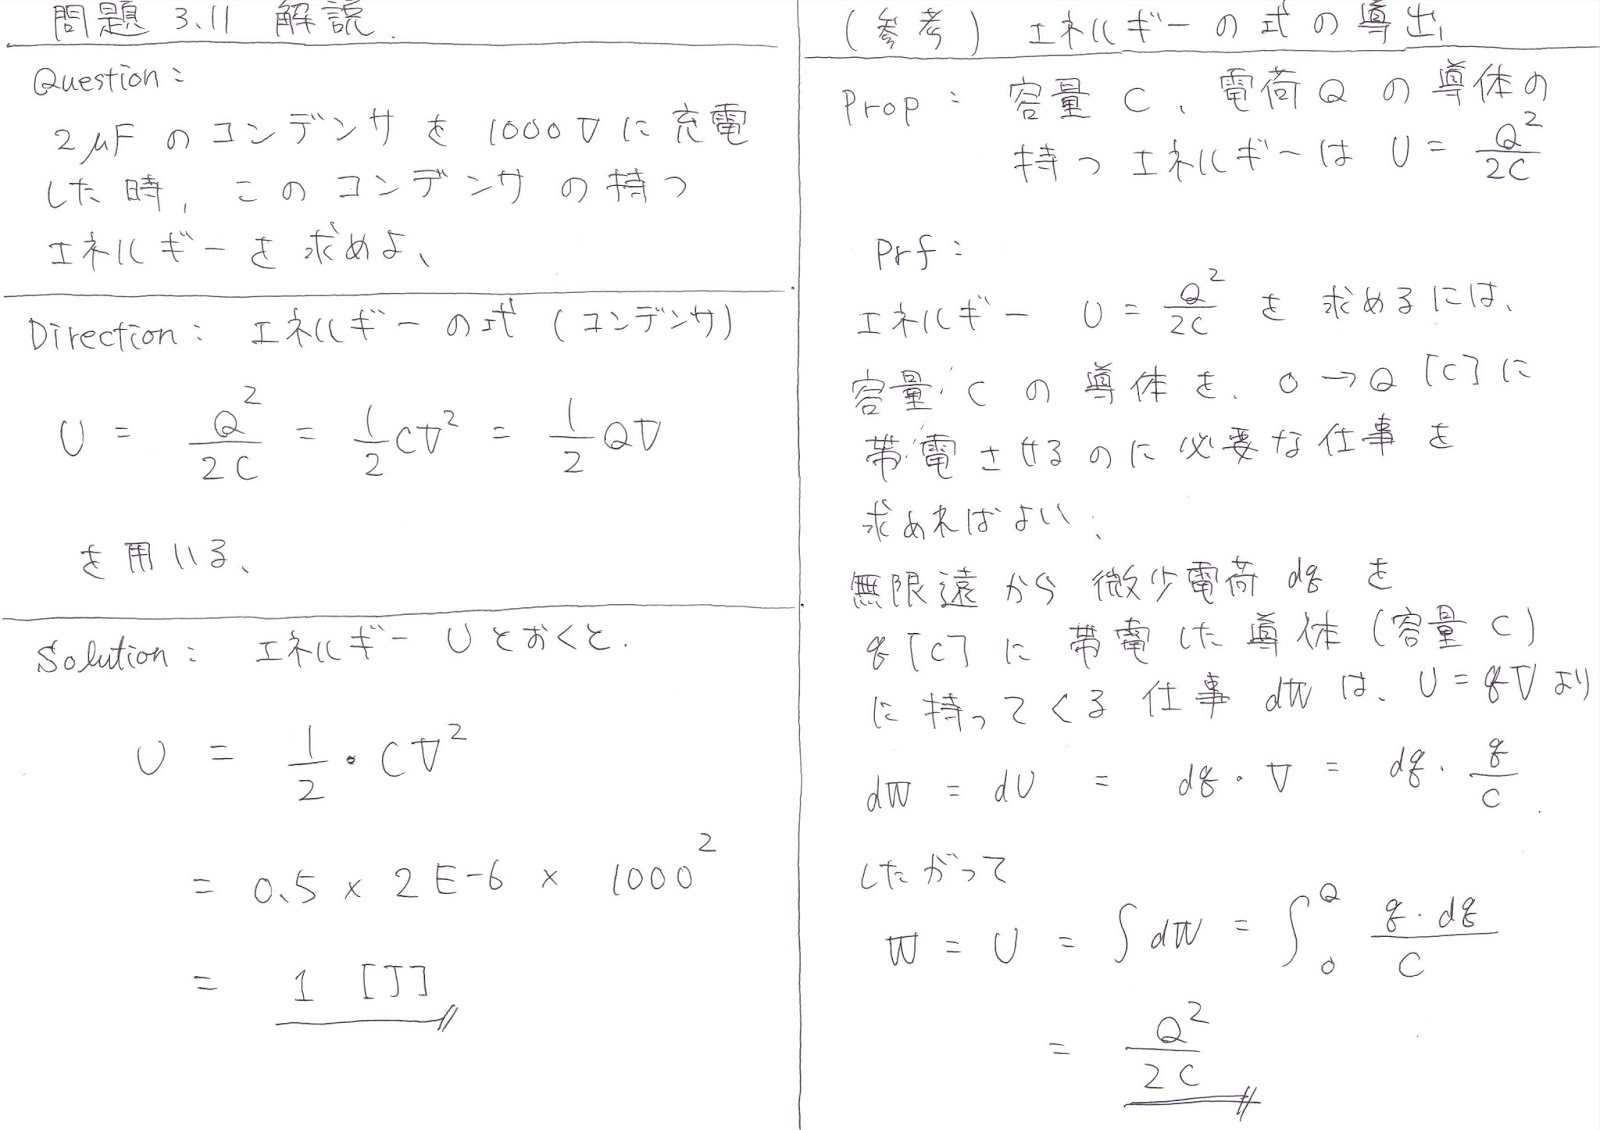 問題 3.11 解説.
Question:
2μFのコンデンサを1000Vに充電
した時, このコンデンサの持つ
エネルギーを求めよ、
Direction: エネルギーの式 (コンデンサ)
U = Q²/2C = 1/2 CV² = 1/2 QV
を用いる、
Solution: エネルギー Uとおくと.
U = 1/2・CV²
= 0.5 × 2E-6 × 1000²
= 1 [J]
(参考) エネルギーの式の導出
Prop : 容量 C、電荷Qの導体の
持つエネルギーは U = Q²/2C
Prf :
エネルギー U = Q²/2C を求めるには、
容量 Cの導体を、0→Q [C]に
帯電させるのに必要な仕事を
求めればよい、
無限遠から微少電荷 dq を
q [C] に帯電した導体 (容量 C)
に持ってくる仕事 dW は、U = qV より
dW = dU = dq・V = dq・q/C
したがって
W = U = ∫dW = ∫₀^Q q・dq/C
= Q²/2C